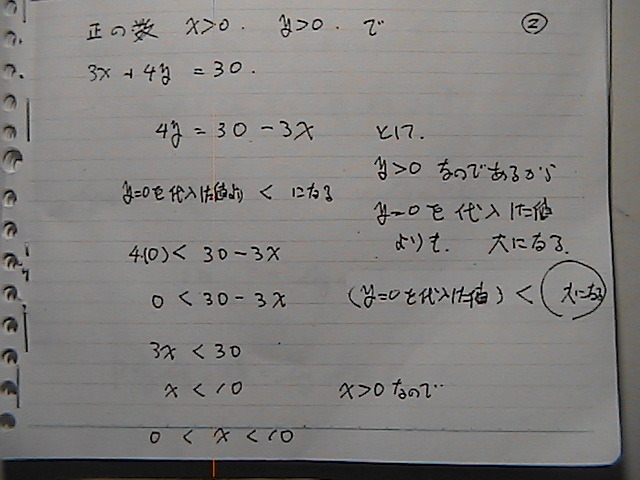 正の数 x>0. y>0. で ②
3x+4y=30.
4y=30-3x として.
y>0 なのであるから
y=0を代入した値より < になる
y=0を代入した値
よりも. 大になる.
4(0)<30-3x
0<30-3x (y=0を代入した値)< 大になる
3x<30
x<10 x>0なので
0<x<10